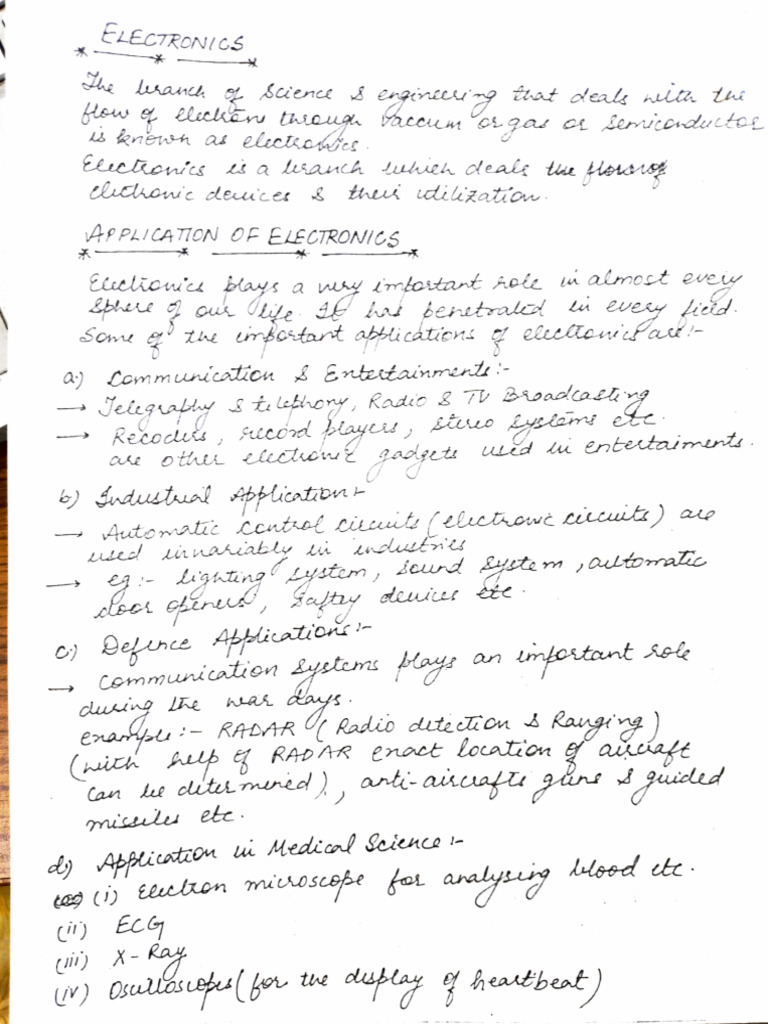 ELECTRONICS
The branch of Science & engineering that deals with the
flow of electrons through vaccum or gas or semiconductor
is known as electronics.
Electronics is a branch which deals the flow of
electronic devices & their utilization.
APPLICATION OF ELECTRONICS
Electronics plays a very important role in almost every
Sphere of our life. It has penetrated in every field.
Some of the important applications of electronics are:-
a.) Communication & Entertainments:-
→ Telegraphy & telephony, Radio & TV Broadcasting
→ Recoders, record players, stereo systems etc.
are other electronic gadgets used in entertaiments.
b) Industrial Application:-
→ Automatic control circuits (electronic circuits) are
used invariably in industries
→ eg:- lighting system, sound system, automatic
door openers, saftey devices etc.
c.) Defence Applications:-
→ Communication systems plays an important role
during the war days.
example:- RADAR (Radio detection & Ranging)
(with help of RADAR exact location of aircraft
can be determined), anti-aircrafts guns & guided
missiles etc.
d.) Application in Medical Science:-
(i) Electron microscope for analysing blood etc.
(ii) ECG
(iii) X-Ray
(iv) Oscilloscopes (for the display of heartbeat)